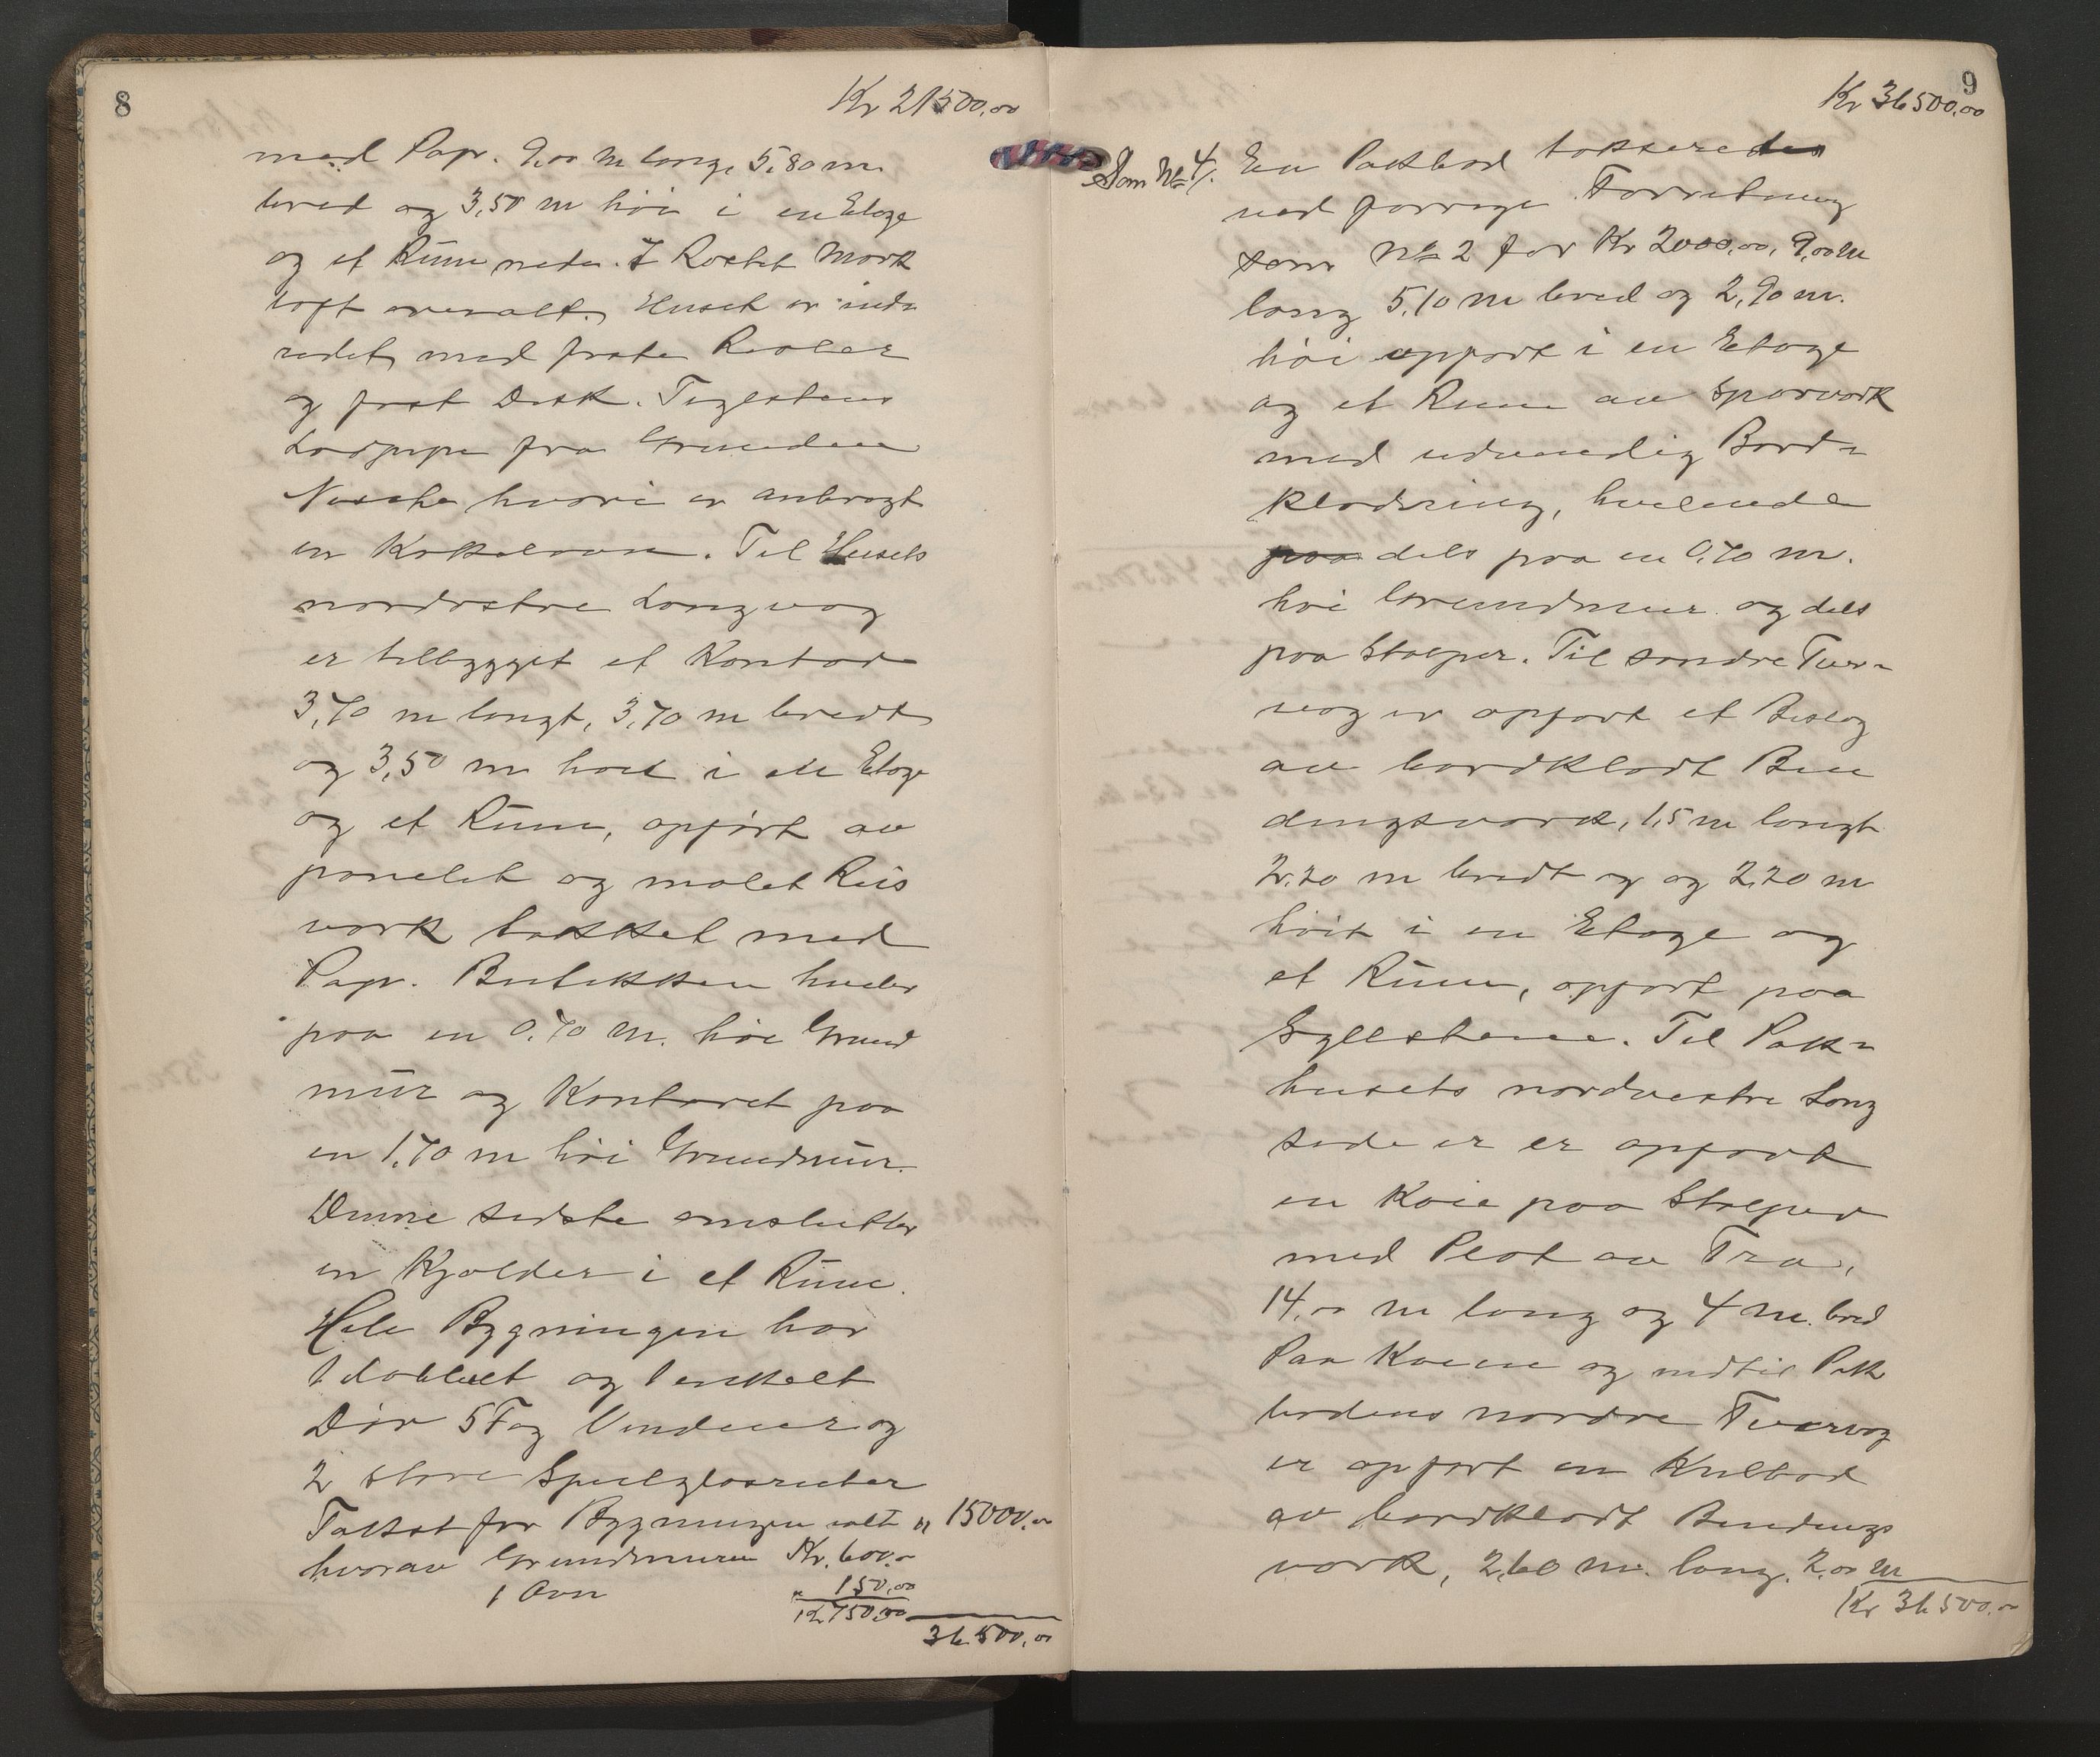 8
Kr 21500,00
med Papr. 9,00 m lang, 5,80 m
bred og 3,50 m høi i en Etage
og et Rum nede. I Røstet mørk
loft overalt. Huset er inde
redet med faste Reoler
og fast Disk. Teglstens
Lodpipe fra Grunden
Nische hvori er anbragt
en Kokkelovn. Til Husets
nordøstre Langvæg
er tilbygget et Kontor
3,70 m langt, 3,70 m bredt
og 3,50 m høit i en Etage
og et Rum, opført av
panelet og malet Reis
værk takket med
Papr. Butikken hviler
paa en 0,70 m. høi Grund
mur og Kontoret paa
en 1,70 m høi Grundmur.
Denne sidste omslutter
en Kjælder i et Rum.
Hele Bygningen har
1 dobbelt og 1 enkelt
Dør 5 Fag Vinduer og
2 store Speilglasruter
Takst for Bygningen valt " 15000,00
hvorav Grundmuren Kr. 600,00
1 Ovn " 150,00
1 750,00
36500,00
9
Kr 36500,00
Som № 4. En Pakbod takseredes
ved forrige Forretning
som № 2 for Kr 2000,00, 9,00 m
lang 5,10 m bred og 2,90 m.
høi opført i en Etage
og et Rum av Sparværk
med udvendig Bord-
klædning, hvilende
paa dels paa en 0,70 m.
høi Grundmur og dels
paa Stolper. Til søndre Tver-
væg er opført et Bislag
av bordklædt Bin
dingsværk, 1,5 m langt
2,20 m bredt og og 2,20 m
høit i en Etage og
et Rum, opført paa
Syllstene. Til Pak-
husets nordvestre Lang
side er er opført
en Kaie paa Stolper
med Plat av Træ,
14,00 m lang og 4 m. bred
Paa Kaien og indtil Pak
bodens nordre Tvervæg
er opført en Kulbod
av bordklædt Bindings
værk, 2,60 m. lang, 2,00 m
Kr 36500,00